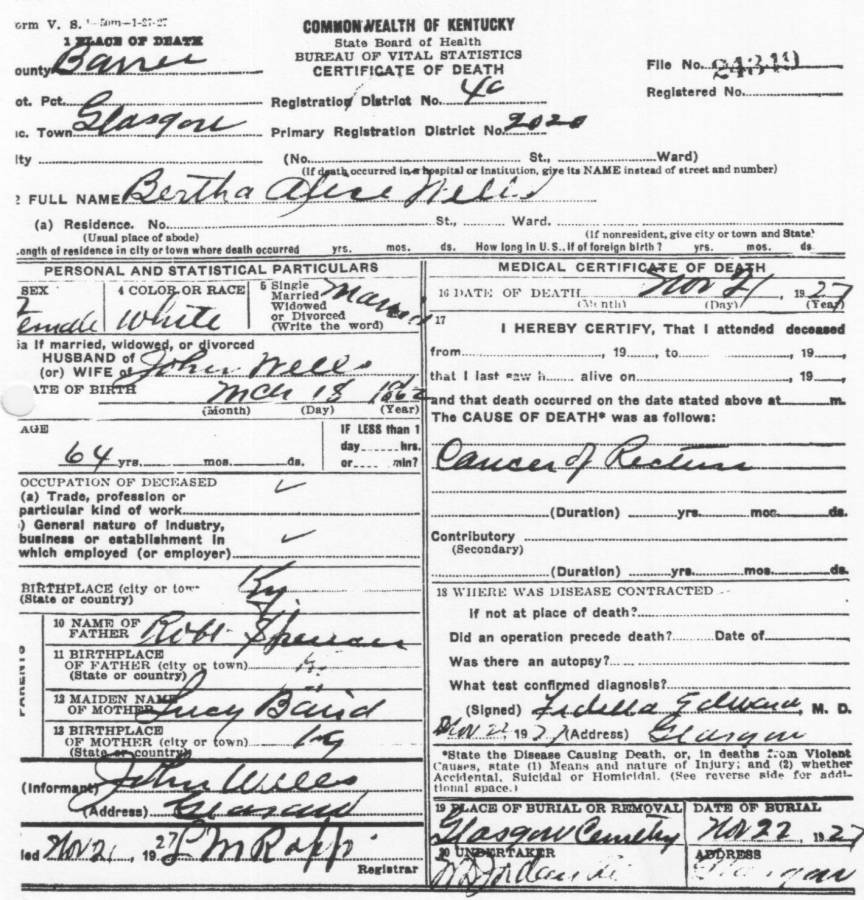 orm V. S. 50m-1-27-27
COMMONWEALTH OF KENTUCKY
State Board of Health
BUREAU OF VITAL STATISTICS
CERTIFICATE OF DEATH
1 PLACE OF DEATH
ounty Barren
File No. 24349
ot. Pct.
Registration District No. 40
Registered No.
nc. Town Glasgow
Primary Registration District No. 2020
ity (No. St., Ward)
(If death occurred in a hospital or institution, give its NAME instead of street and number)
2 FULL NAME Bertha Wells
(a) Residence. No. St., Ward.
(Usual place of abode) (If nonresident, give city or town and State)
ength of residence in city or town where death occurred yrs. mos. ds. How long in U.S., if of foreign birth? yrs. mos. ds.
PERSONAL AND STATISTICAL PARTICULARS
SEX
emale
4 COLOR OR RACE
White
5 Single
Married
Widowed
or Divorced
(Write the word)
Married
5a If married, widowed, or divorced
HUSBAND of
(or) WIFE of John Wells
ATE OF BIRTH Mch 18
(Month) (Day) (Year)
AGE
64 yrs. mos. ds.
IF LESS than 1
day hrs.
or min?
OCCUPATION OF DECEASED
(a) Trade, profession or
particular kind of work
) General nature of Industry,
business or establishment in
which employed (or employer)
BIRTHPLACE (city or tow
(State or country) Ky
PARENTS
10 NAME OF
FATHER Robt
11 BIRTHPLACE
OF FATHER (city or town)
(State or country)
12 MAIDEN NAME
OF MOTHER Lucy Baird
13 BIRTHPLACE
OF MOTHER (city or town) Ky
(State or country)
(Informant) John Wells
(Address) Glasgow
led Nov 21, 1927 L M Rapp
Registrar
MEDICAL CERTIFICATE OF DEATH
16 DATE OF DEATH Nov 21 1927
(Month) (Day) (Year)
17
I HEREBY CERTIFY, That I attended deceased
from , 19 , to , 19 ,
that I last saw h alive on , 19 ,
and that death occurred on the date stated above at m.
The CAUSE OF DEATH* was as follows:
Cancer of Rectum
(Duration) yrs. mos. ds.
Contributory
(Secondary)
(Duration) yrs. mos. ds.
18 WHERE WAS DISEASE CONTRACTED
if not at place of death?
Did an operation precede death? Date of
Was there an autopsy?
What test confirmed diagnosis?
(Signed) M. D.
Nov 22 1927 (Address) Glasgow
*State the Disease Causing Death, or, in deaths from Violent
Causes, state (1) Means and nature of Injury; and (2) whether
Accidental, Suicidal or Homicidal. (See reverse side for addi-
tional space.)
19 PLACE OF BURIAL OR REMOVAL
Glasgow Cemetry
DATE OF BURIAL
Nov 22, 1927
20 UNDERTAKER
ADDRESS
Glasgow